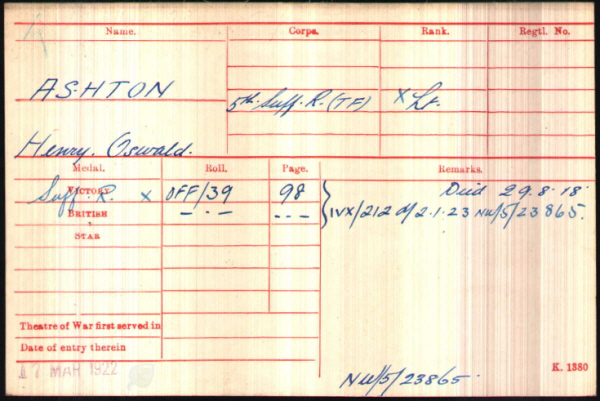 Name. Corps. Rank. Regtl. No.
ASHTON
5th Suff. R. (TF) x Lt.
Henry. Oswald.
Medal. Roll. Page. Remarks.
VICTORY Suff. R. x OFF/39 98 Died 29.8.18.
BRITISH — · — - - - IVX/212 d/2.1.23 NW/5/23865.
STAR
Theatre of War first served in
Date of entry therein
17 MAR 1922
K. 1380
NW/5/23865.